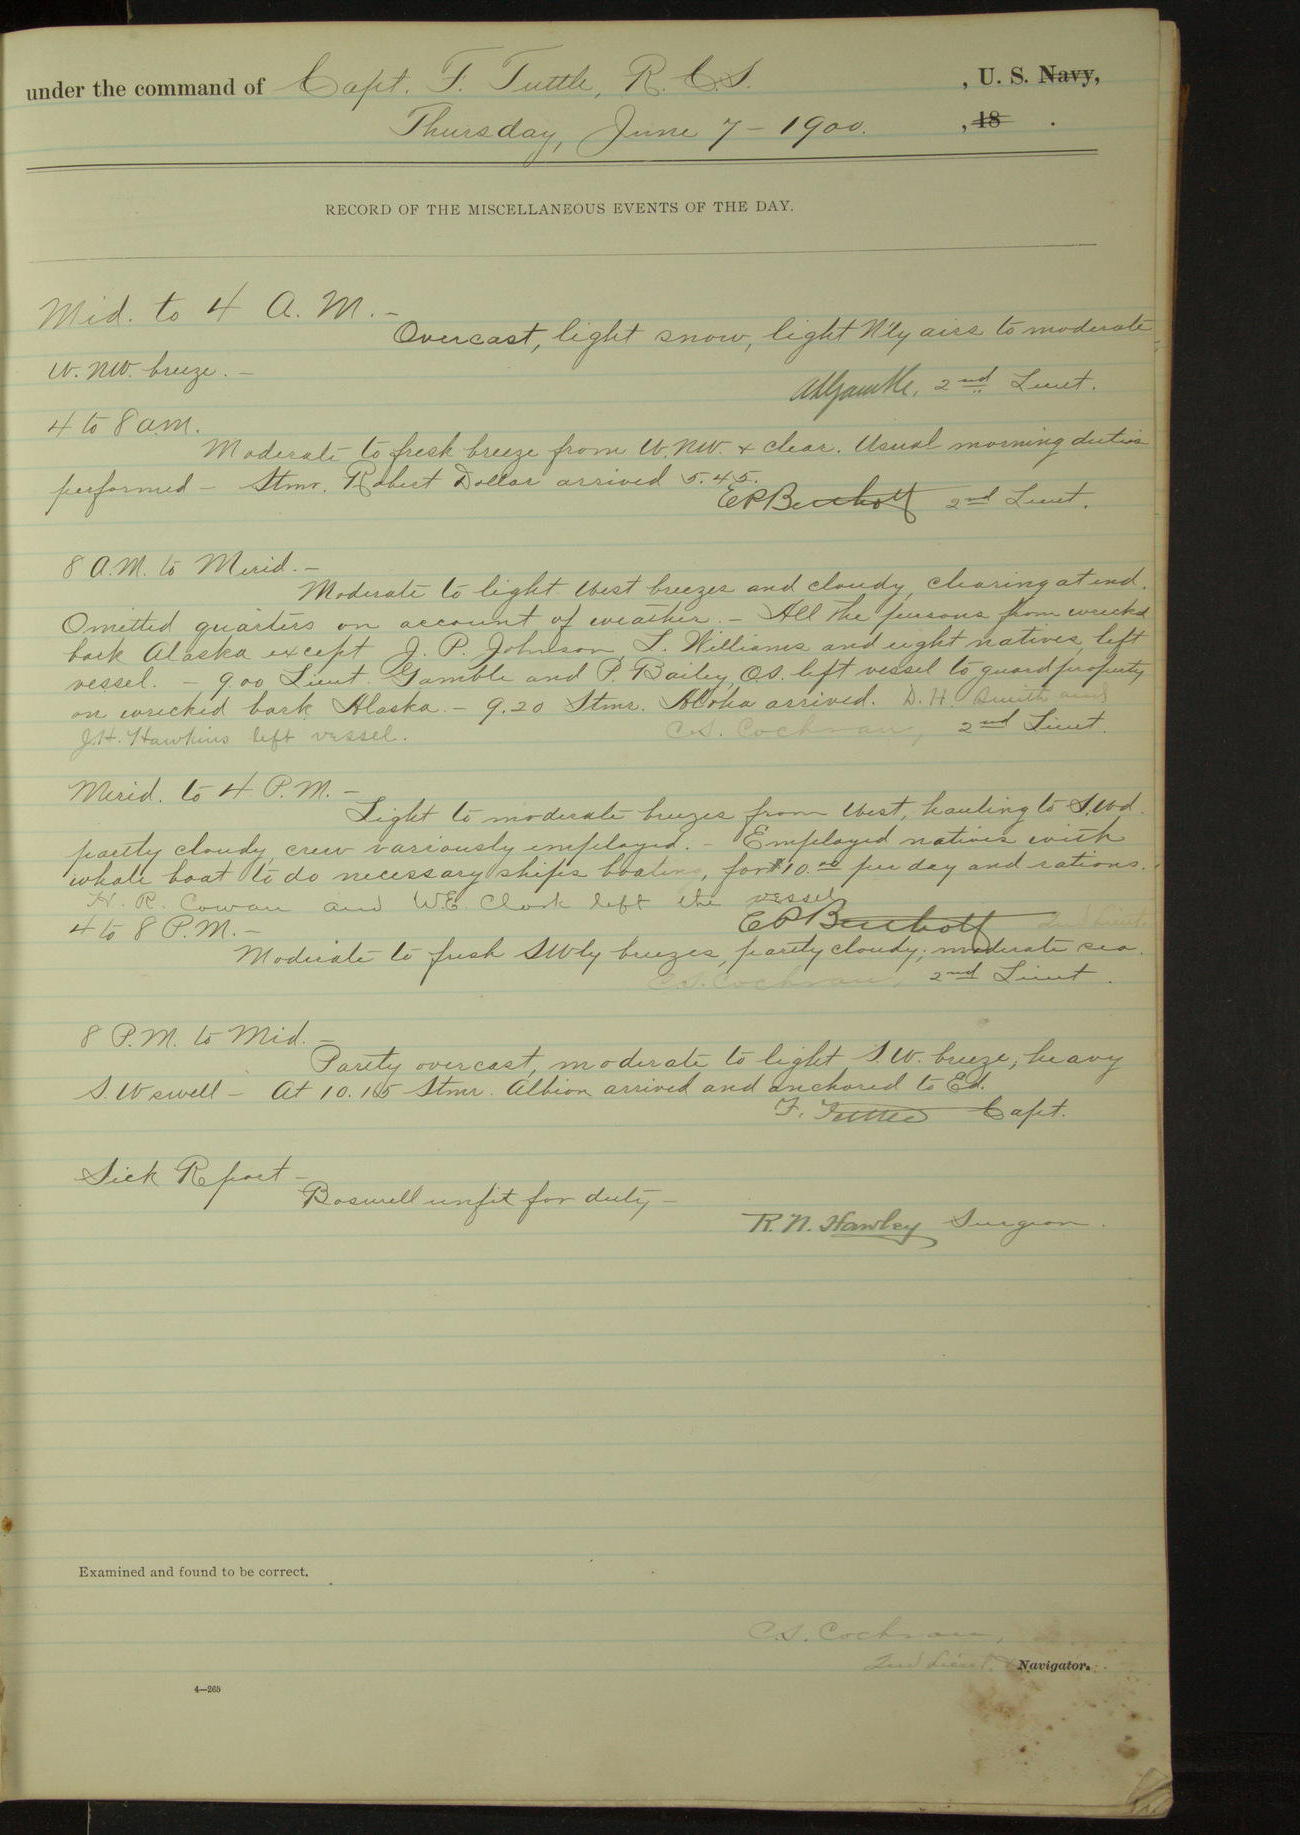 under the command of Capt. F. Tuttle, R. C. S. , U. S. Navy,
Thursday, June 7 - 1900. , 18 .
RECORD OF THE MISCELLANEOUS EVENTS OF THE DAY.
Mid. to 4 A. M. -
Overcast, light snow, light N'ly airs to moderate
W. NW. breeze. -
2nd Lieut.
4 to 8 a.m.
Moderate to fresh breeze from W. NW. & clear. Usual morning duties
performed - Stmr. Robert Dollar arrived 5.45.
2nd Lieut.
8 A.M. to Merid. -
Moderate to light West breezes and cloudy, clearing at end.
Omitted quarters on account of weather. - All the persons from wrecked
bark Alaska except J. P. Johnson, L. Williams and eight natives, left
vessel. - 9.00 Lieut. Gamble and P. Bailey, O.S. left vessel to guard property
on wrecked bark Alaska. - 9.20 Stmr. Aloha arrived. D. H. Smith and
J. H. Hawkins left vessel.
C. S. Cochran, 2nd Lieut.
Merid. to 4 P.M. -
Light to moderate breezes from West, hauling to S.Wd.
partly cloudy, crew variously employed. - Employed natives with
whale boat to do necessary ship's boating, for $10.00 per day and rations.
H. R. Cowan and W.E. Clark left the vessel
2nd Lieut.
4 to 8 P.M. -
Moderate to fresh SWly breezes, partly cloudy; moderate sea.
C. S. Cochran, 2nd Lieut.
8 P.M. to Mid. -
Partly overcast, moderate to light S.W. breeze; heavy
S.W swell - At 10.15 Stmr. Albion arrived and anchored to Ed.
F. Tuttle Capt.
Sick Report -
Boswell unfit for duty -
R. N. Hawley Surgeon.
Examined and found to be correct.
C. S. Cochran,
2nd Lieut. & Navigator.
4—265